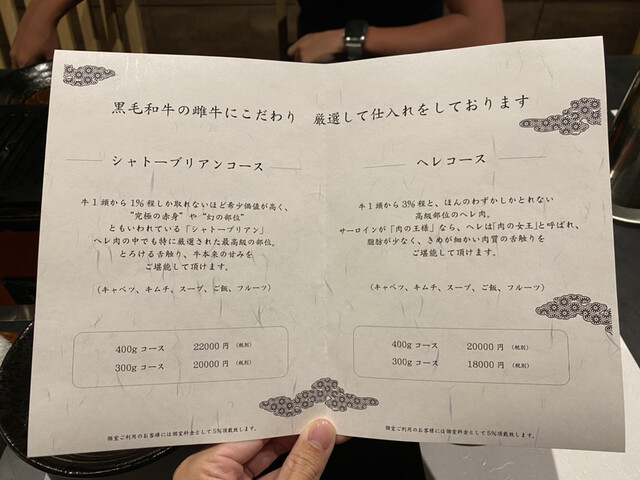 黒毛和牛の雌牛にこだわり 厳選して仕入れをしております
シャトーブリアンコース
牛1頭から1%程しか取れないほど希少価値が高く、
“究極の赤身”や“幻の部位”
ともいわれている「シャトーブリアン」
ヘレ肉の中でも特に厳選された最高級の部位。
とろける舌触り、牛本来の甘みを
ご堪能して頂けます。
(キャベツ、キムチ、スープ、ご飯、フルーツ)
400g コース 22000 円 (税別)
300g コース 20000 円 (税別)
個室ご利用のお客様には個室料金として5%頂戴致します。
ヘレコース
牛1頭から3%程と、ほんのわずかしかとれない
高級部位のヘレ肉。
サーロインが「肉の王様」なら、ヘレは「肉の女王」と呼ばれ、
脂肪が少なく、きめが細かい肉質の舌触りを
ご堪能して頂けます。
(キャベツ、キムチ、スープ、ご飯、フルーツ)
400g コース 20000 円 (税別)
300g コース 18000 円 (税別)
個室ご利用のお客様には個室料金として5%頂戴致します。